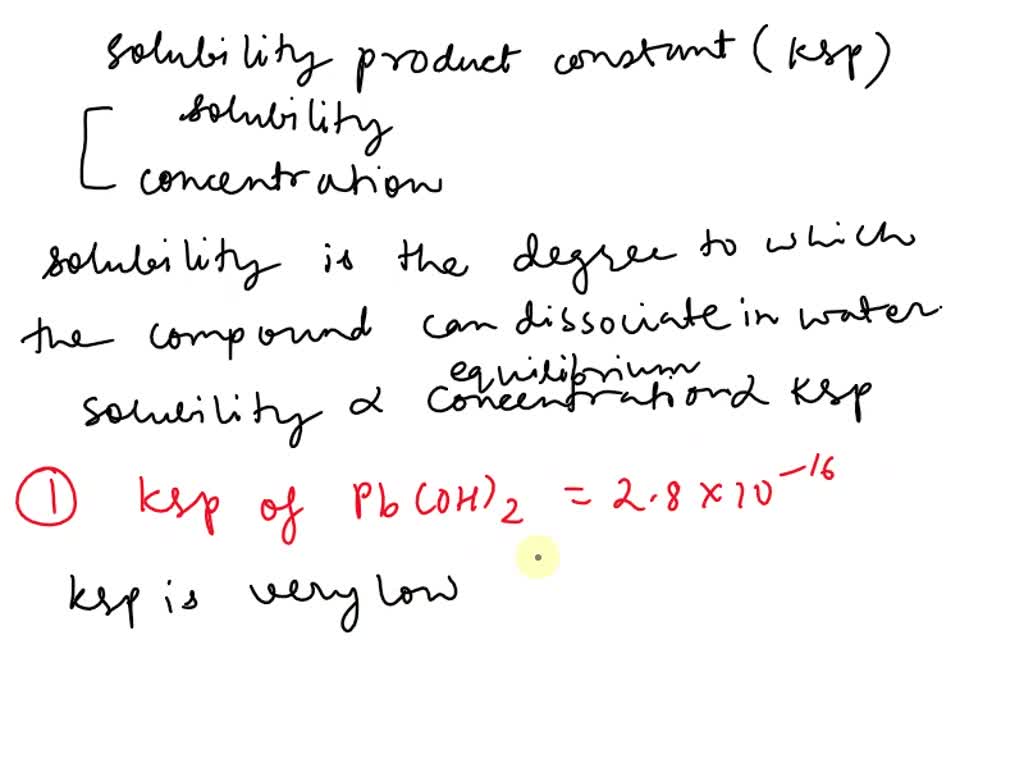 solubility product constant (ksp)
solubility
concentration
solubility is the degree to which
the compound can dissociate in water.
equilibrium
solubility α concentration α ksp
① ksp of Pb(OH)₂ = 2.8 × 10⁻¹⁶
ksp is very low